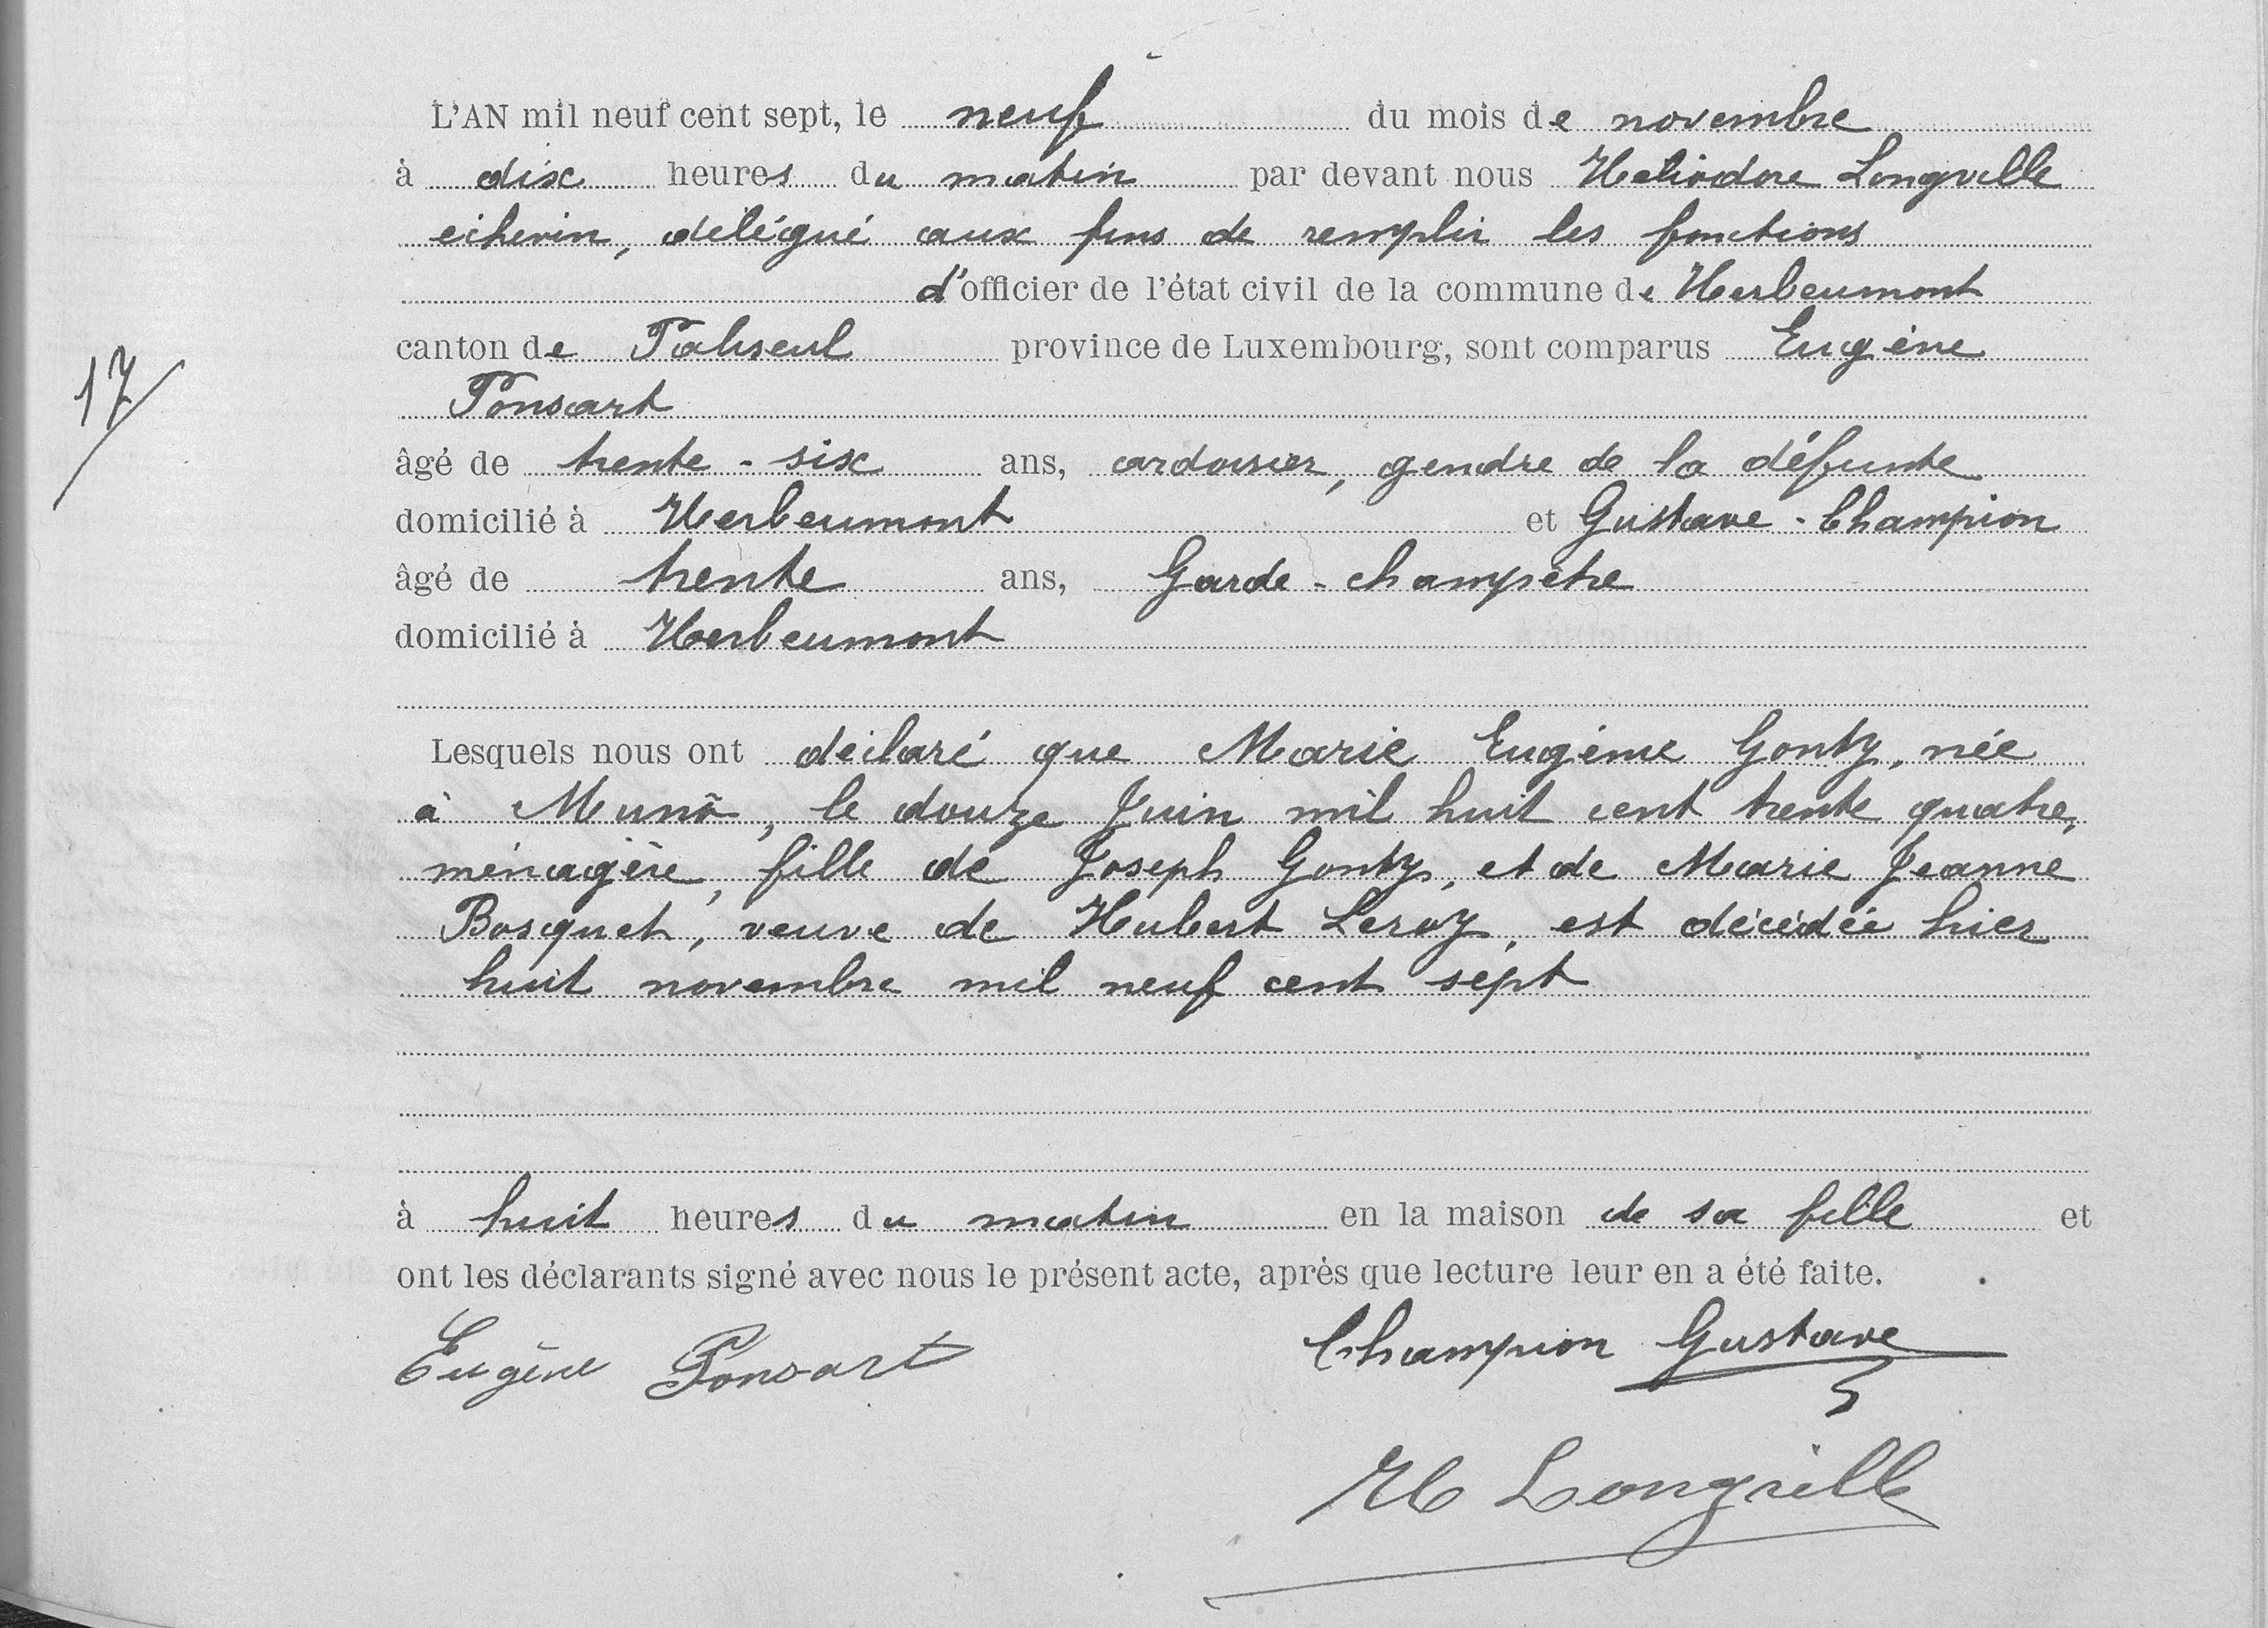 L'AN mil neuf cent sept, le neuf du mois de novembre
à dix heures du matin par devant nous Héliodore Longville
échevin, délégué aux fins de remplir les fonctions
d'officier de l'état civil de la commune de Herbeumont
canton de Paliseul province de Luxembourg, sont comparus Eugène
17
Ponsart
âgé de trente-six ans, ardoisier, gendre de la défunte
domicilié à Herbeumont et Gustave-Champion
âgé de trente ans, Garde-champêtre
domicilié à Herbeumont
Lesquels nous ont déclaré que Marie Eugénie Gonty, née
à Munô, le douze Juin mil huit cent trente quatre,
ménagère, fille de Joseph Gonty, et de Marie Jeanne
Bosquet, veuve de Hubert Leroy, est décédée hier
huit novembre mil neuf cent sept
à huit heures du matin en la maison de sa fille et
ont les déclarants signé avec nous le présent acte, après que lecture leur en a été faite.
Eugène Ponsart Champion Gustave
H Longville